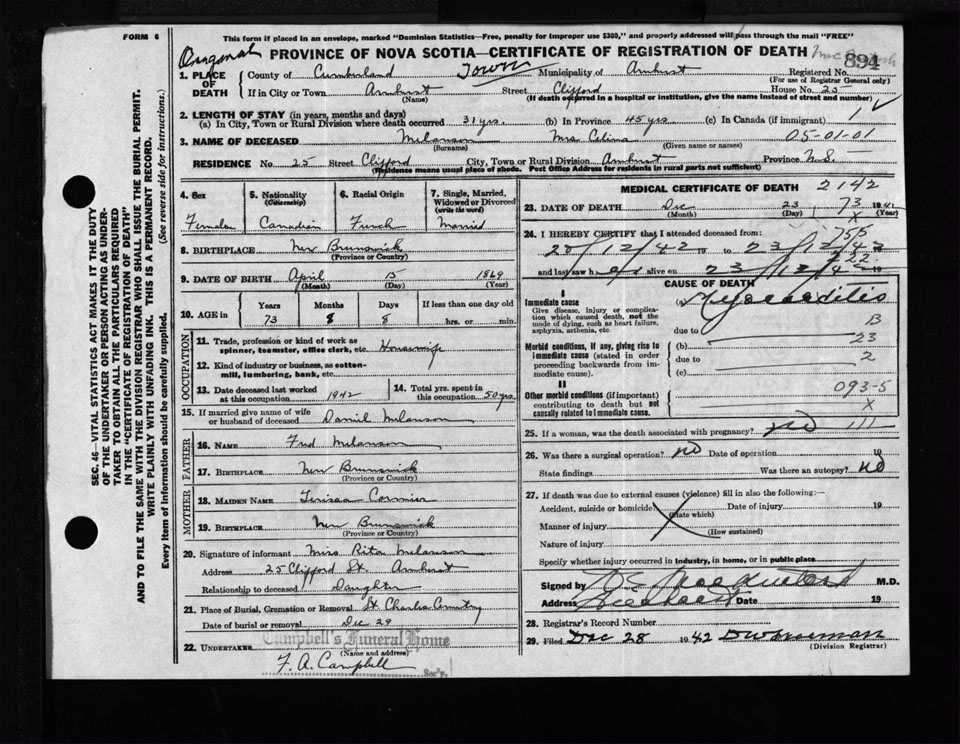 FORM 6
This form if placed in an envelope, marked "Dominion Statistics—Free, penalty for improper use $300," and properly addressed will pass through the mail "FREE"
Original
PROVINCE OF NOVA SCOTIA—CERTIFICATE OF REGISTRATION OF DEATH
894
1. PLACE OF DEATH
County of Cumberland Town Municipality of Amherst Registered No.
(For use of Registrar General only)
If in City or Town Amherst Street Clifford House No. 25
(Name) (If death occurred in a hospital or institution, give the name instead of street and number)
2. LENGTH OF STAY (in years, months and days)
(a) In City, Town or Rural Division where death occurred 31 yrs. (b) In Province 45 yrs (c) In Canada (if immigrant) 1
3. NAME OF DECEASED Melanson Mrs Celina 05-01-01
(Surname) (Given name or names)
RESIDENCE No. 25 Street Clifford City, Town or Rural Division Amherst Province N.S.
(Residence means usual place of abode. Post Office Address for residents in rural parts not sufficient)
4. Sex
Female
5. Nationality (Citizenship)
Canadian
6. Racial Origin
French
7. Single, Married, Widowed or Divorced (write the word)
Married
8. BIRTHPLACE New Brunswick
(Province or Country)
9. DATE OF BIRTH April 15 1869
(Month) (Day) (Year)
10. AGE in
Years Months Days If less than one day old
73 8 8 hrs. or min.
OCCUPATION
11. Trade, profession or kind of work as spinner, teamster, office clerk, etc. Housewife
12. Kind of industry or business, as cotton-mill, lumbering, bank, etc.
13. Date deceased last worked at this occupation 1942
14. Total yrs. spent in this occupation 50 yrs
15. If married give name of wife or husband of deceased Daniel Melanson
FATHER
16. NAME Fred Melanson
17. BIRTHPLACE New Brunswick
(Province or Country)
MOTHER
18. MAIDEN NAME Teresa Cormier
19. BIRTHPLACE New Brunswick
(Province or Country)
20. Signature of informant Miss Rita Melanson
Address 25 Clifford St. Amherst
Relationship to deceased Daughter
21. Place of Burial, Cremation or Removal St. Charles Cemetery
Date of burial or removal Dec 29
Campbell's Funeral Home
22. UNDERTAKER (Name and address)
F. A. Campbell
MEDICAL CERTIFICATE OF DEATH 2142
23. DATE OF DEATH Dec 23 1942
73
(Month) (Day) X (Year)
24. I HEREBY CERTIFY that I attended deceased from 755
20/12/42 19 to 23/12/42
222
and last saw her alive on 23/12/4 19
CAUSE OF DEATH
I
Immediate cause
Give disease, injury or complication which caused death, not the mode of dying, such as heart failure, asphyxia, asthenia, etc.
(a) Myocarditis
due to
B
Morbid conditions, if any, giving rise to immediate cause (stated in order proceeding backwards from immediate cause).
(b) 23
due to 2
(c)
II
Other morbid conditions (if important) contributing to death but not causally related to immediate cause.
093-5
X
25. If a woman, was the death associated with pregnancy? no 111
26. Was there a surgical operation? no Date of operation 19
State findings Was there an autopsy? no
27. If death was due to external causes (violence) fill in also the following:—
Accident, suicide or homicide? Date of injury 19
(State which)
Manner of injury
(How sustained)
Nature of injury
Specify whether injury occurred in industry, in home, or in public place
Signed by M.D.
Address Date 19
28. Registrar's Record Number
29. Filed Dec 28 1942
(Division Registrar)
SEC. 46—VITAL STATISTICS ACT MAKES IT THE DUTY OF THE UNDERTAKER OR PERSON ACTING AS UNDERTAKER TO OBTAIN ALL THE PARTICULARS REQUIRED IN THE "CERTIFICATE OF REGISTRATION OF DEATH" AND TO FILE THE SAME WITH THE DIVISION REGISTRAR WHO SHALL ISSUE THE BURIAL PERMIT.
WRITE PLAINLY WITH UNFADING INK. THIS IS A PERMANENT RECORD.
Every item of information should be carefully supplied. (See reverse side for instructions.)